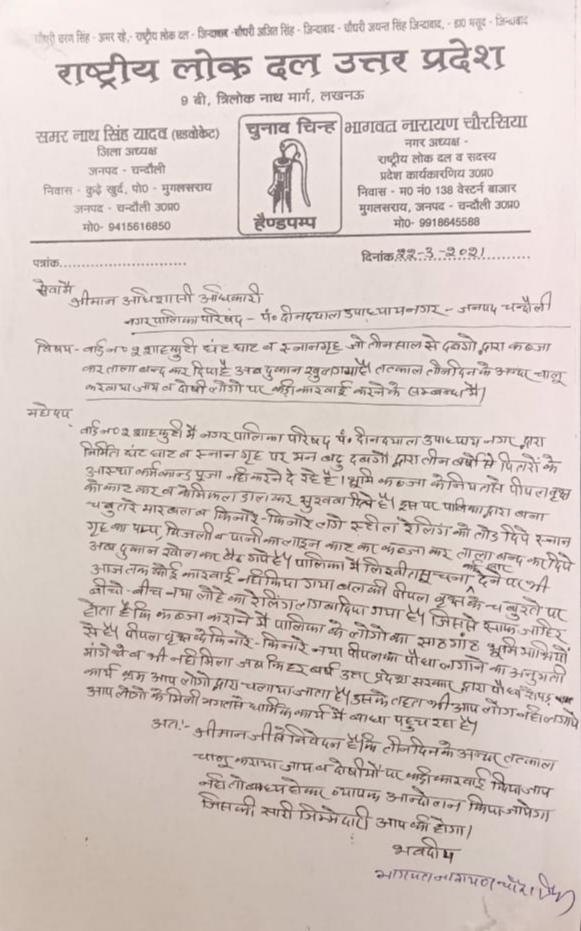 चौधरी चरण सिंह - अमर रहे, - राष्ट्रीय लोक दल - जिन्दाबाद -चौधरी अजित सिंह - जिन्दाबाद - चौधरी जयन्त सिंह जिन्दाबाद, - डा0 मसूद - जिन्दाबाद
राष्ट्रीय लोक दल उत्तर प्रदेश
9 बी, त्रिलोक नाथ मार्ग, लखनऊ
समर नाथ सिंह यादव (एडवोकेट)
जिला अध्यक्ष
जनपद - चन्दौली
निवास - कुढ़े खुर्द, पो0 - मुगलसराय
जनपद - चन्दौली उ0प्र0
मो0- 9415616850
चुनाव चिन्ह
हैण्डपम्प
भागवत नारायण चौरसिया
नगर अध्यक्ष -
राष्ट्रीय लोक दल व सदस्य
प्रदेश कार्यकारणिय उ0प्र0
निवास - म0 नं0 138 वेस्टर्न बाजार
मुगलसराय, जनपद - चन्दौली उ0प्र0
मो0- 9918645588
पत्रांक..............................
दिनांक 22-3-2021
सेवामें
श्रीमान अधिशासी अधिकारी
नगर पालिका परिषद - पं० दीनदयाल उपाध्याय नगर - जनपद चन्दौली
विषय - वार्ड न० 2 शाहकुटी घंट घाट व स्नानगृह जो तीन साल से दबंगो द्वारा कब्जा
कर ताला बन्द कर दिया है अब दुकान खुल गया है। तत्काल तीन दिन के अन्दर चालू
करवाया जाय व दोषी लोगो पर कड़ी कारवाई करने के सम्बन्ध में।
महोदय,
वार्ड न० 2 शाहकुटी में नगर पालिका परिषद पं० दीनदयाल उपाध्याय नगर द्वारा
निर्मित घंट घाट व स्नान गृह पर मन बढ़ दबंगो द्वारा तीन वर्षो से पितरों के
आस्था कर्मकान्ड पूजा नही करने दे रहे है। भूमि कब्जा के नियत से पीपल वृक्ष
को काट कर व केमिकल डाल कर सुखवा दिये है। इस पर पालिका द्वारा बना
चबुतरे मारबल व किनारे-किनारे लगे स्टील रेलिंग को तोड़ दिये स्नान
गृह का पम्प, बिजली व पानी का लाइन काट कर कब्जा कर ताला बन्द कर दिये
अब दुकान खोल कर बैठ गये है। पालिका में लिखीत सूचना कई बार देने पर भी
आज तक कोई कारवाई नही किया गया बलकी पीपल वृक्ष के चबुतरे पर
बीचो-बीच नया लोहे का रेलिंग लगवा दिया गया है। जिससे साफ जाहिर
होता है कि कब्जा कराने में पालिका के लोगो का साठगांठ भूमि माफियों
से है। पीपल वृक्ष के किनारे-किनारे नया पीपल का पौधा लगाने का अनुमती
मांगने पर भी नही मिला जब कि हर वर्ष उत्तर प्रदेश सरकार द्वारा पौध रोपड़
कार्य क्रम आप लोगो द्वारा चलाया जाता है। उसके तहत भी आप लोग नही लगाये
आप लोगो के मिली भगत से धार्मिक कार्य में बाधा पहुच रहा है।
अतः- श्रीमान जी से निवेदन है कि तीन दिन के अन्दर तत्काल
चालू कराया जाय व दोषीयों पर कड़ी कारवाई किया जाय
नही तो बाध्य होकर व्यापक आन्दोलन किया जायेगा
जिसकी सारी जिम्मेदारी आप की होगा।
भवदीय
भागवत नारायण चौरसिया